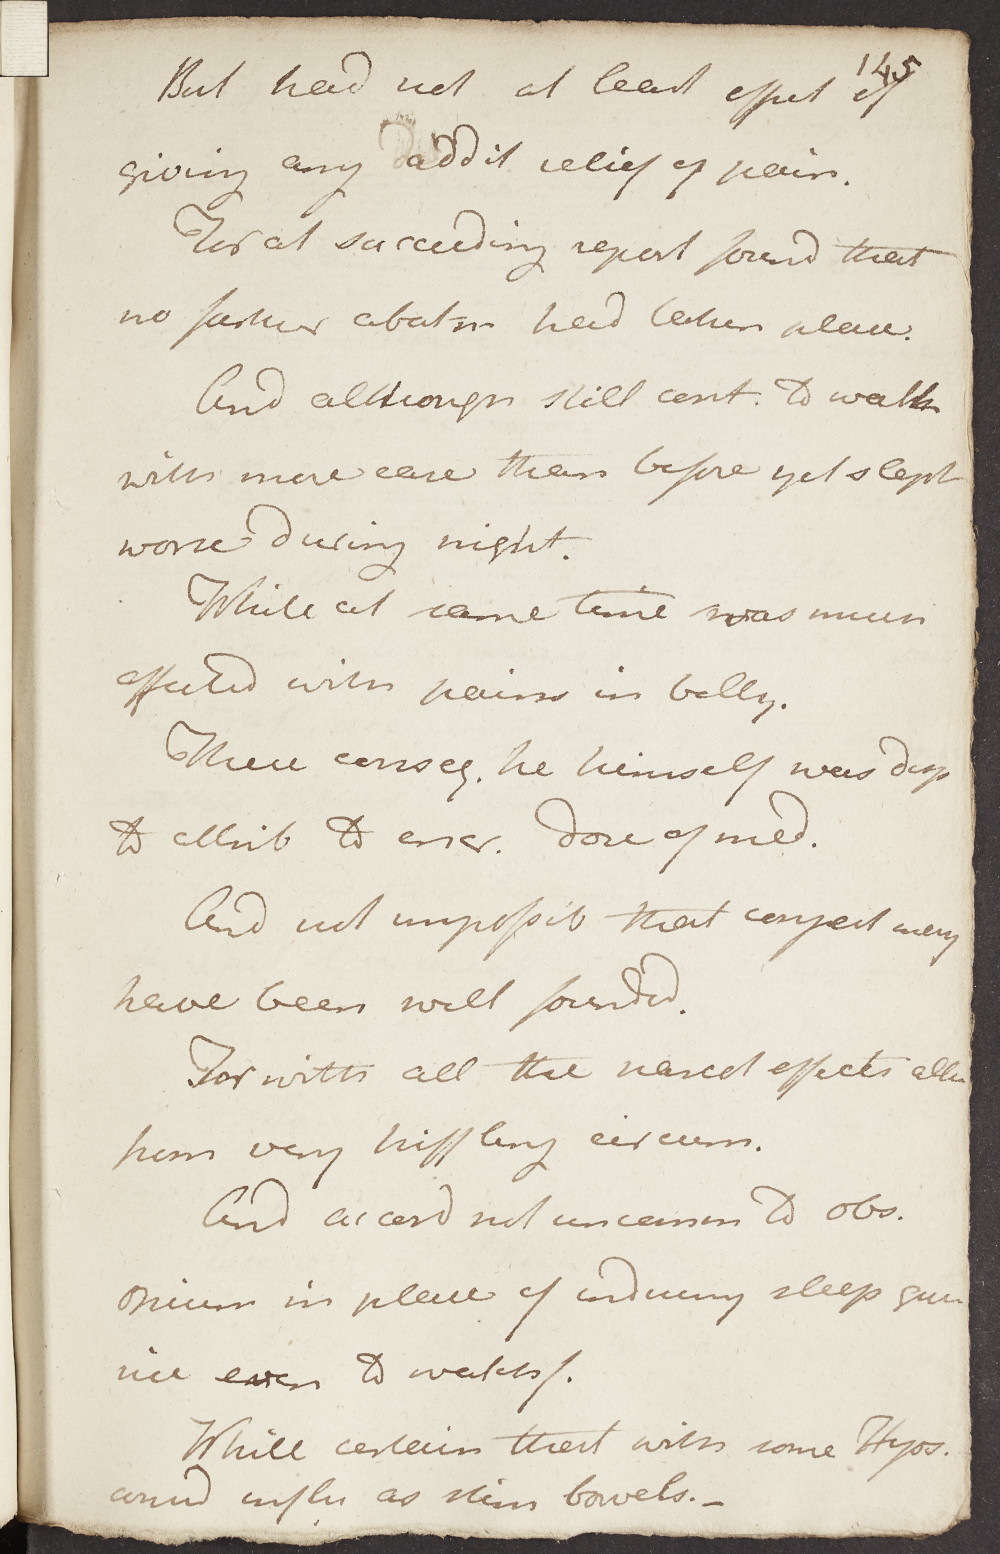 145
But had not at least effect of
giving any addit relief of pain.
For at succeeding report found that
no farther abatm had taken place.
And although still cont. to walk
with more ease than before yet slept
worse during night.
While at same time was much
affected with pains in belly.
These conseq. he himself was disp
to attrib to incr. dose of med.
And not impossib that conject may
have been well founded.
For with all the narcot effects alter
from very triffling circum.
And accord not uncomm to obs.
Opium in place of inducing sleep give
rise even to watchf.
While certain that with some Hyos.
cound as stim bowels._